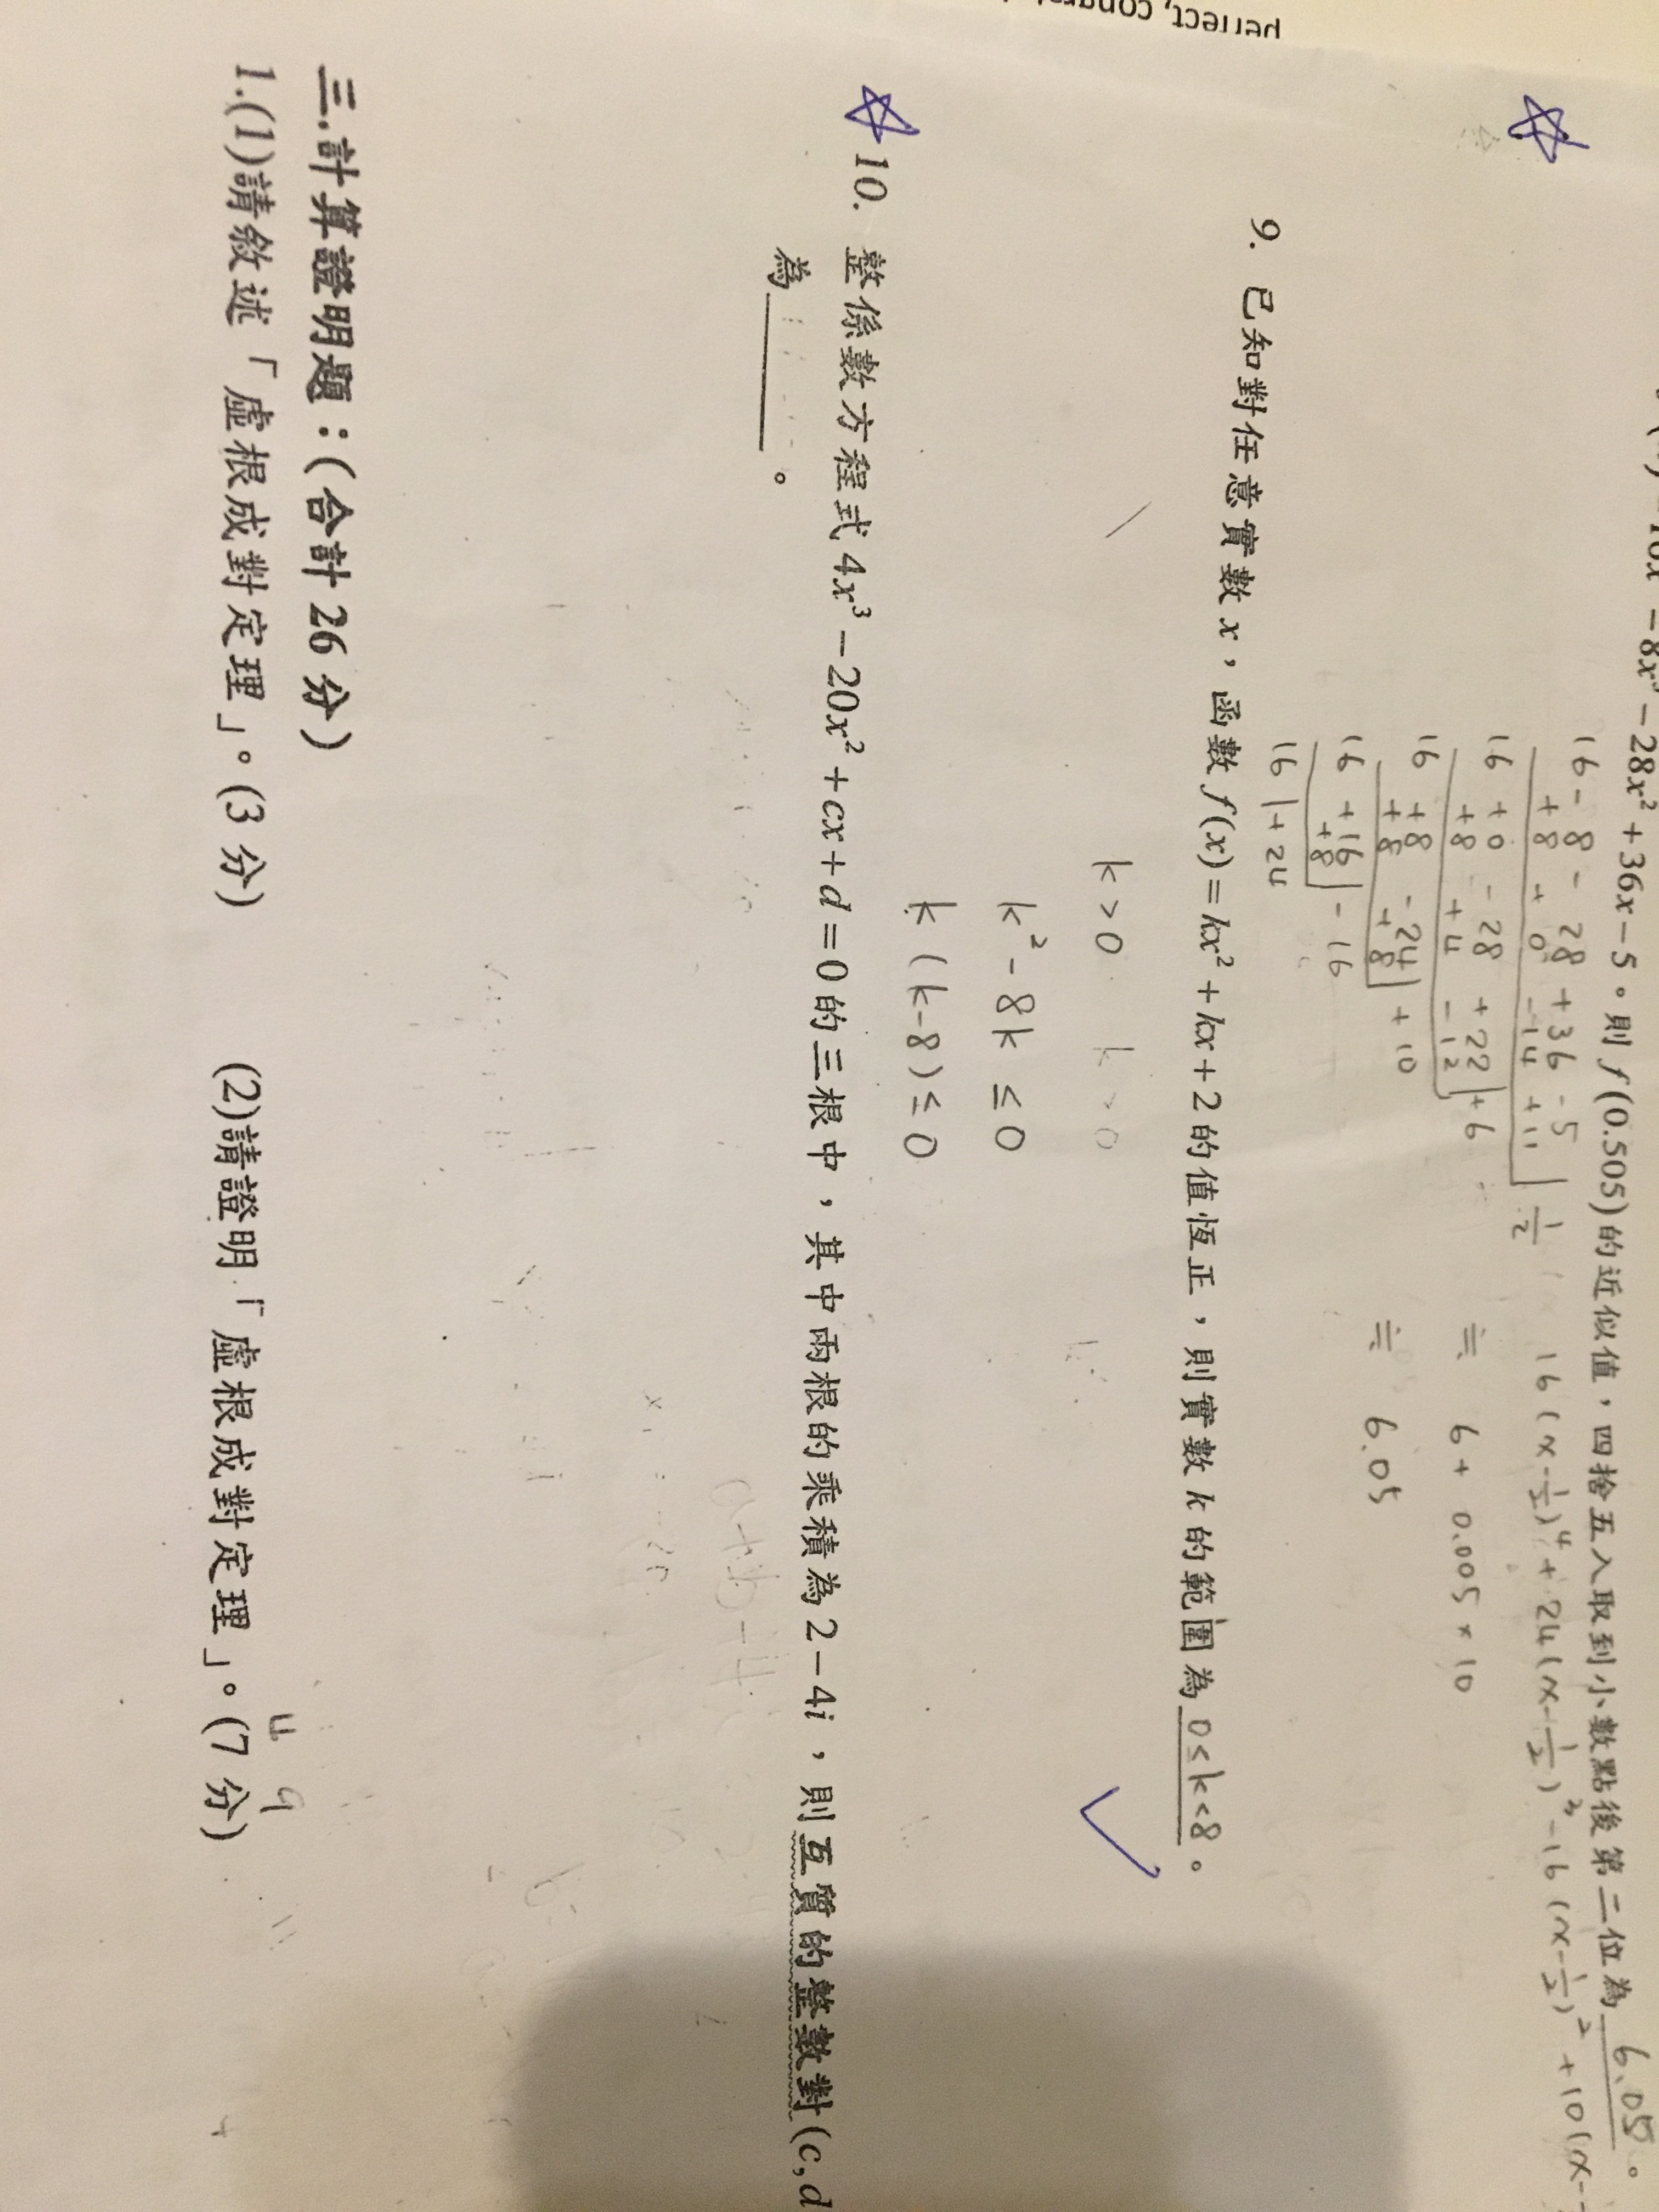 perfect, congra
-8x³-28x²+36x-5。則f(0.505)的近似值，四捨五入取到小數點後第二位為 6.05 。
16 - 8 - 28 + 36 - 5 | 1/2
+ 8 + 0 - 14 + 11
16 + 0 - 28 + 22 | + 6
+ 8 + 4 - 12
16 + 8 - 24 | + 10
+ 8 + 8
16 + 16 | - 16
+ 8
16 | + 24
16(x-1/2)⁴+24(x-1/2)³-16(x-1/2)²+10(x-
≒ 6 + 0.005 × 10
≒ 6.05
9. 已知對任意實數x，函數f(x)=kx²+kx+2的值恆正，則實數k的範圍為 0≤k<8 。
k>0 k>0
k²-8k ≤ 0
k(k-8) ≤ 0
10. 整係數方程式4x³-20x²+cx+d=0的三根中，其中兩根的乘積為2-4i，則互質的整數對(c,d
為 。
三.計算證明題：(合計26分)
1.(1)請敘述「虛根成對定理」。(3分) (2)請證明「虛根成對定理」。(7分)